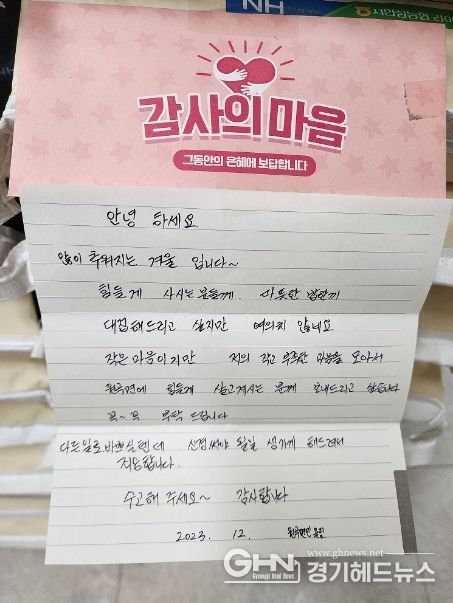 NH
서안성농협
감사의 마음
그동안의 은혜에 보답합니다
안녕 하세요
많이 추워지는 겨울 입니다~
힘들게 사시는 분들께 따뜻한 밥한끼
대접해드리고 싶지만 여의치 않네요
작은 마음이지만 저의 작고 부족한 마음을 모아서
원곡면에 힘들게 살고계시는 분께 보내드리고 싶습니다
꼭~꼭 부탁 드립니다
다른일로 바쁘실텐데 신경써야 될일 생기게 해드려서
죄송합니다.
수고해 주세요~ 감사합니다
2023. 12. 원곡면민 올림
www.ghnews.net
GHN 경기헤드뉴스
Gyeonggi Head News